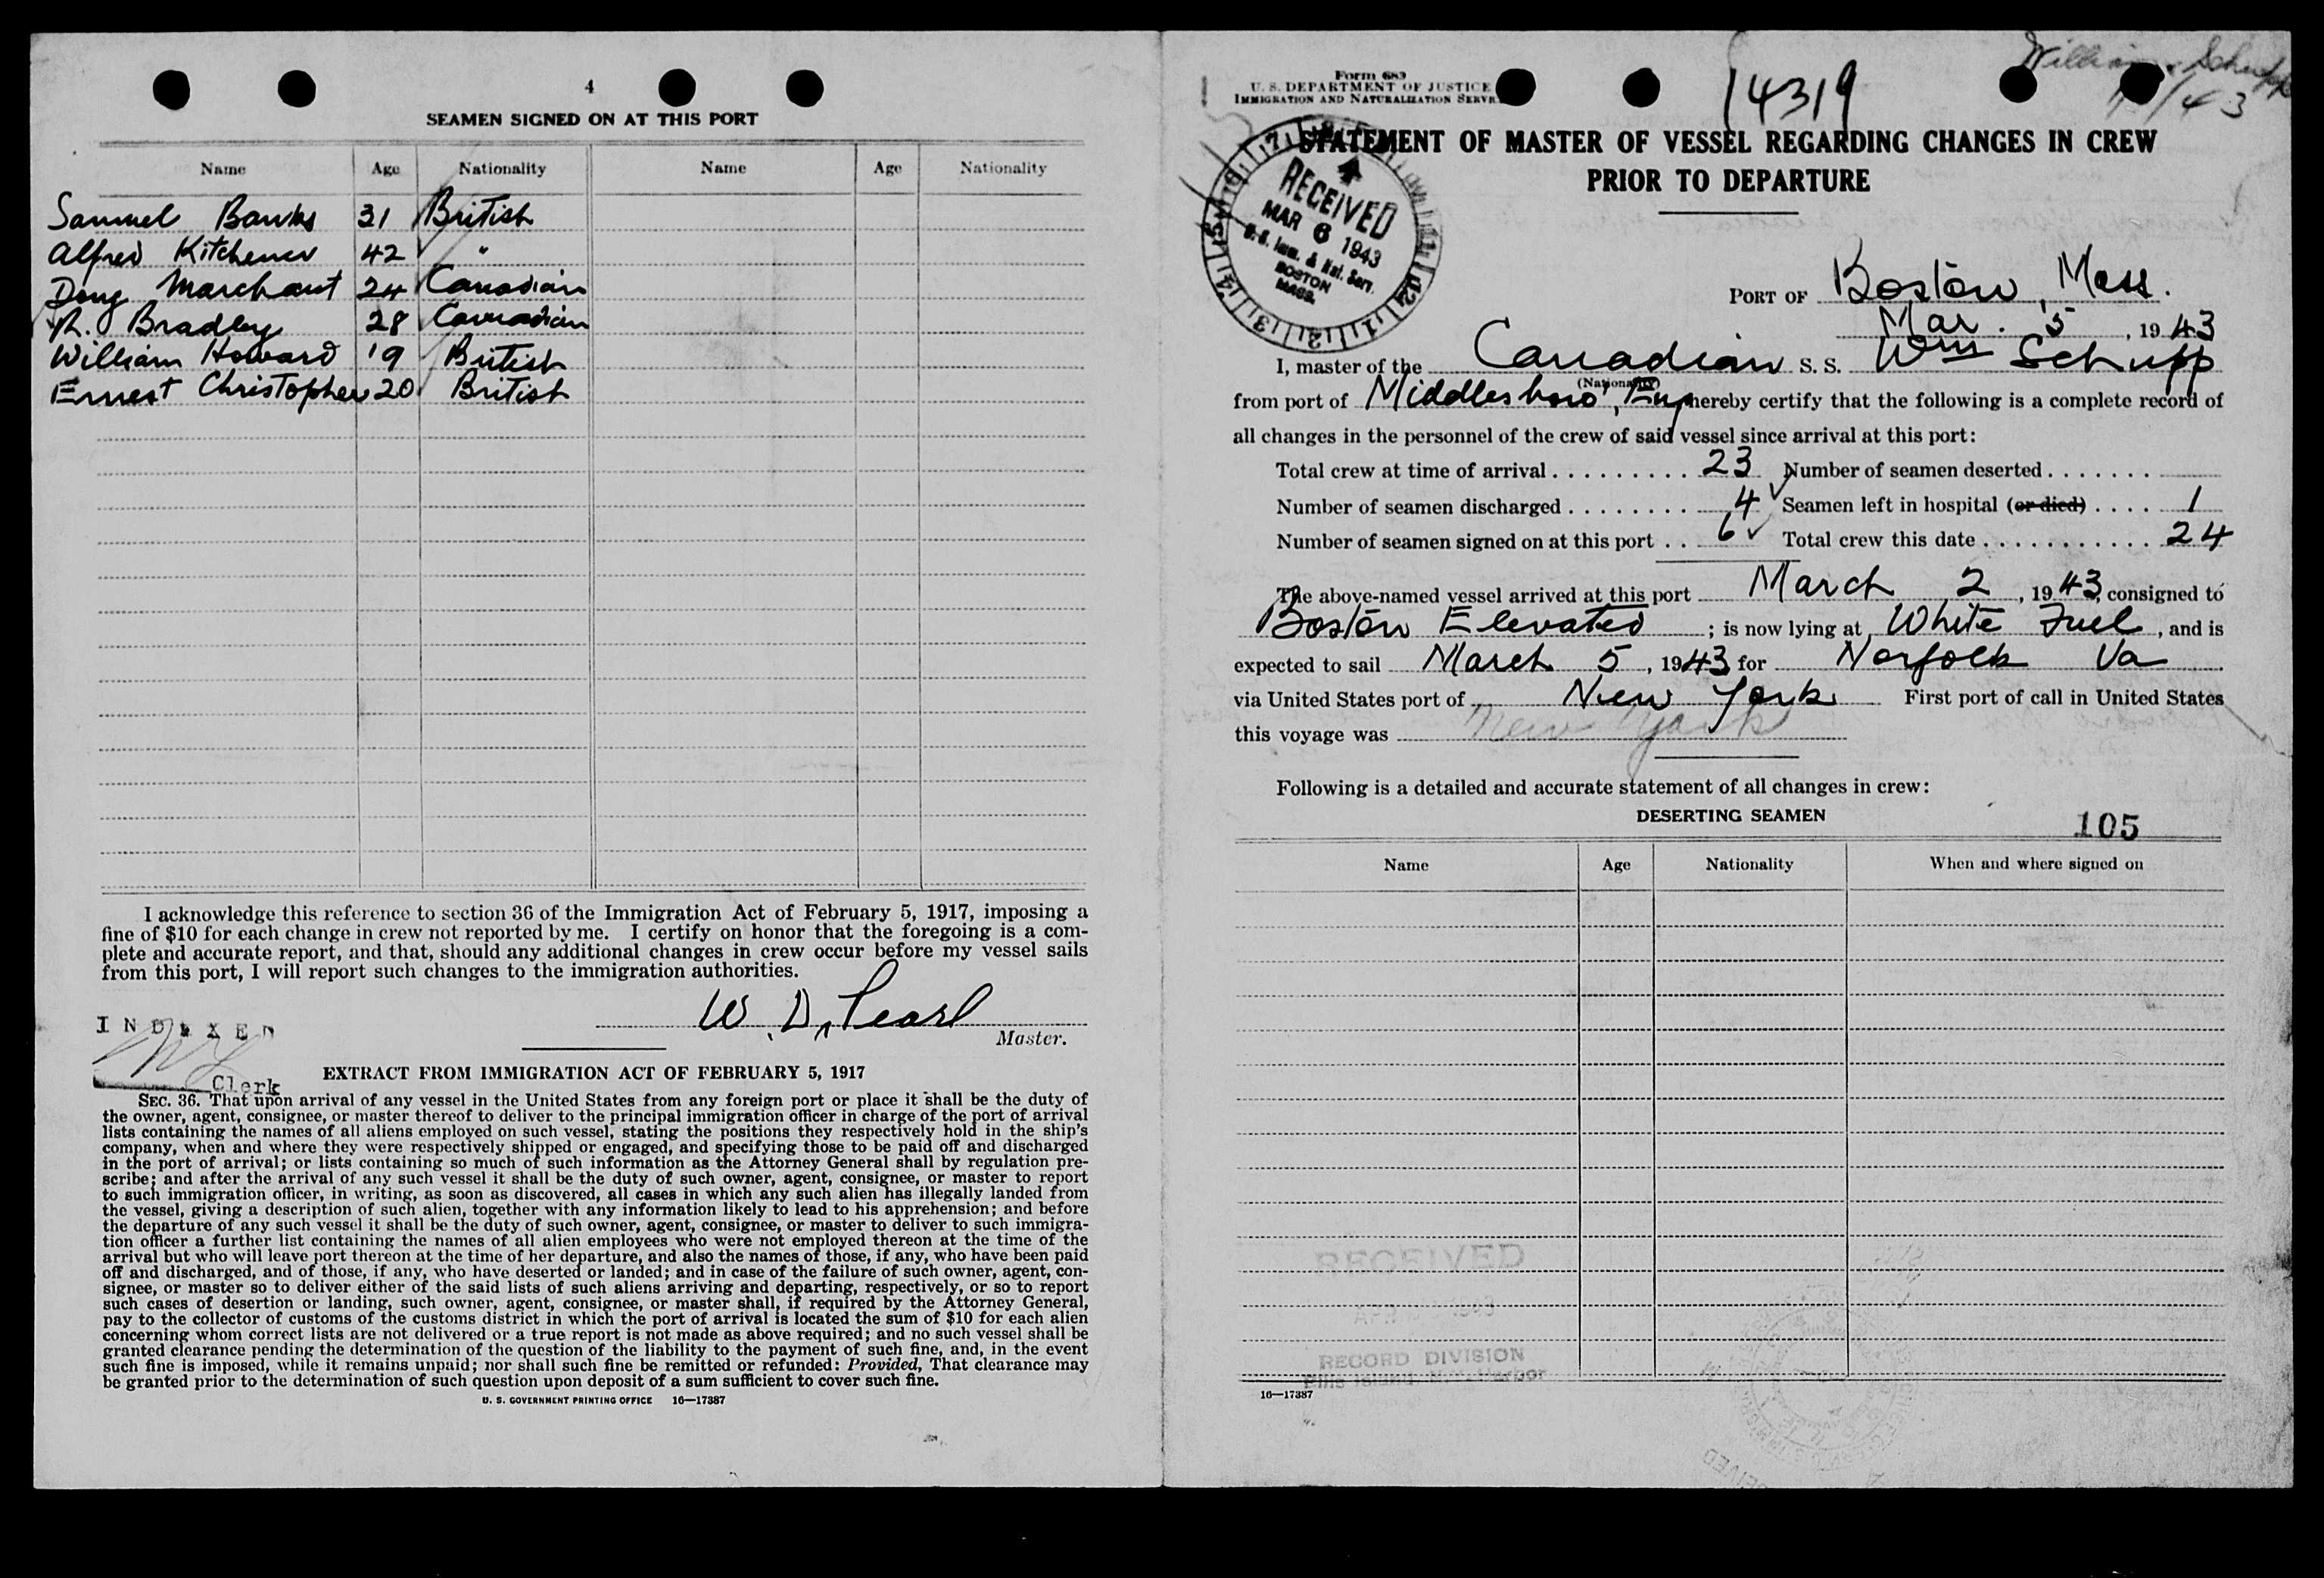 4
SEAMEN SIGNED ON AT THIS PORT
Name Age Nationality Name Age Nationality
Samuel Banks 31 British
Alfred Kitchener 42 "
Doug Marchant 24 Canadian
R. Bradley 28 Canadian
William Howard 19 British
Ernest Christopher 20 British
I acknowledge this reference to section 36 of the Immigration Act of February 5, 1917, imposing a
fine of $10 for each change in crew not reported by me. I certify on honor that the foregoing is a com-
plete and accurate report, and that, should any additional changes in crew occur before my vessel sails
from this port, I will report such changes to the immigration authorities.
W. D. Pearl
Master.
INDEXED
Clerk
EXTRACT FROM IMMIGRATION ACT OF FEBRUARY 5, 1917
SEC. 36. That upon arrival of any vessel in the United States from any foreign port or place it shall be the duty of
the owner, agent, consignee, or master thereof to deliver to the principal immigration officer in charge of the port of arrival
lists containing the names of all aliens employed on such vessel, stating the positions they respectively hold in the ship's
company, when and where they were respectively shipped or engaged, and specifying those to be paid off and discharged
in the port of arrival; or lists containing so much of such information as the Attorney General shall by regulation pre-
scribe; and after the arrival of any such vessel it shall be the duty of such owner, agent, consignee, or master to report
to such immigration officer, in writing, as soon as discovered, all cases in which any such alien has illegally landed from
the vessel, giving a description of such alien, together with any information likely to lead to his apprehension; and before
the departure of any such vessel it shall be the duty of such owner, agent, consignee, or master to deliver to such immigra-
tion officer a further list containing the names of all alien employees who were not employed thereon at the time of the
arrival but who will leave port thereon at the time of her departure, and also the names of those, if any, who have been paid
off and discharged, and of those, if any, who have deserted or landed; and in case of the failure of such owner, agent, con-
signee, or master so to deliver either of the said lists of such aliens arriving and departing, respectively, or so to report
such cases of desertion or landing, such owner, agent, consignee, or master shall, if required by the Attorney General,
pay to the collector of customs of the customs district in which the port of arrival is located the sum of $10 for each alien
concerning whom correct lists are not delivered or a true report is not made as above required; and no such vessel shall be
granted clearance pending the determination of the question of the liability to the payment of such fine, and, in the event
such fine is imposed, while it remains unpaid; nor shall such fine be remitted or refunded: Provided, That clearance may
be granted prior to the determination of such question upon deposit of a sum sufficient to cover such fine.
U. S. GOVERNMENT PRINTING OFFICE 16—17387
Form 683
U. S. DEPARTMENT OF JUSTICE
IMMIGRATION AND NATURALIZATION SERVICE
14319
William Schupp
STATEMENT OF MASTER OF VESSEL REGARDING CHANGES IN CREW
PRIOR TO DEPARTURE
RECEIVED
MAR 6 1943
U.S. Imm. & Nat. Serv.
BOSTON
MASS.
PORT OF Boston, Mass.
Mar. 5, 1943
I, master of the Canadian S. S. Wm Schupp
(Nationality)
from port of Middlesboro, Eng hereby certify that the following is a complete record of
all changes in the personnel of the crew of said vessel since arrival at this port:
Total crew at time of arrival . . . . . . . . . . 23 Number of seamen deserted . . . . . . .
Number of seamen discharged . . . . . . . . 4 Seamen left in hospital (or died) . . . . 1
Number of seamen signed on at this port . . 6 Total crew this date . . . . . . . . . . . 24
The above-named vessel arrived at this port March 2, 1943, consigned to
Boston Elevated ; is now lying at White Fuel, and is
expected to sail March 5, 1943 for Norfolk Va
via United States port of New York First port of call in United States
this voyage was New York
Following is a detailed and accurate statement of all changes in crew:
DESERTING SEAMEN
105
Name Age Nationality When and where signed on
RECEIVED
RECORD DIVISION
Ellis Island, N.Y. Harbor
16—17387